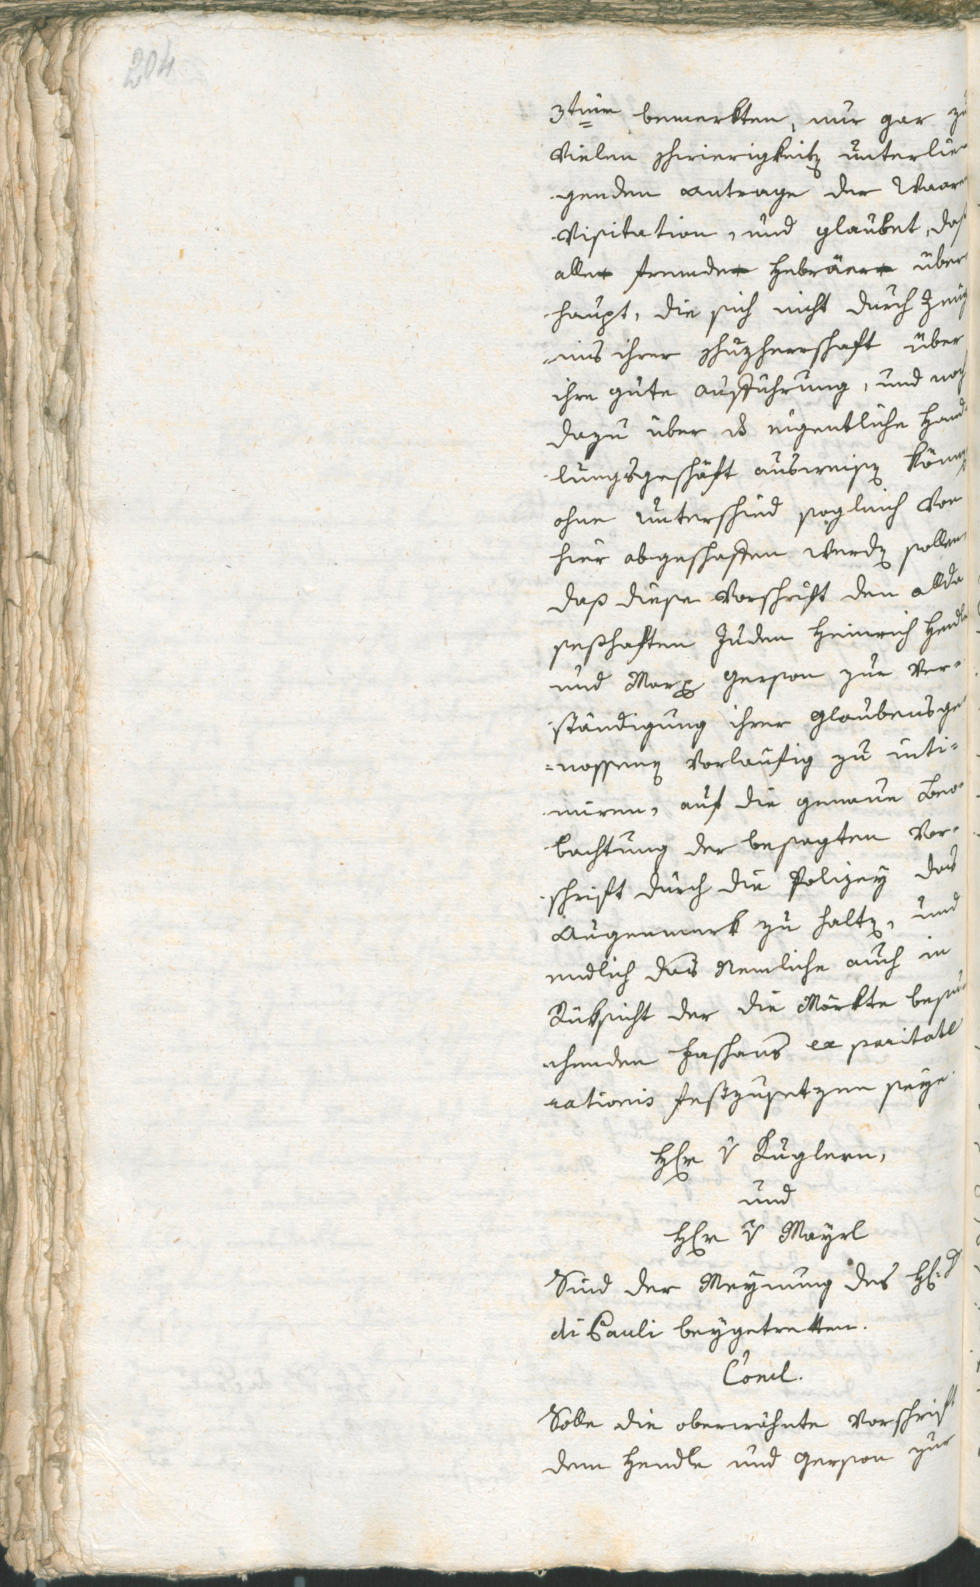 204
3tium bemerkten, nur gar zu
vielen schwierigkeitẽ unterlie-
genden Antrage der Waaren
Visitation, und glaubet, daß
alle fremde Hebräer über
haupt, die sich nicht durch Zeug
nis ihrer schuzherrschaft über
ihre gute Aufführung, und noch
dazu über ds eigentliche Hand
lungsgeschäft ausweisẽ könẽ,
ohne unterschied sogleich von
hier abgeschaffen werdẽ sollen,
daß diese Vorschrift den allda
seßhaften Juden Heinrich Hendle
und Marx Gerson zur Ver-
ständigung ihrer Glaubensge
=nossenẽ vorlaufig zu inti=
miren, auf die genaue Beo-
bachtung der besagten Vor-
schrift durch die Polizey das
Augenmerk zu haltẽ, und
endlich das Nemliche auch in
Rüksicht der die Märkte besu
chenden Hashaus ex paritate
rationis festzusetzen seye.
Hr v Kuglern,
und
Hr v Mayrl
Sind der Meynung des H: v
di Pauli beygetretten.
Concl.
Solle die oberwähnte Vorschrift
dem Hendle und Gerson zur